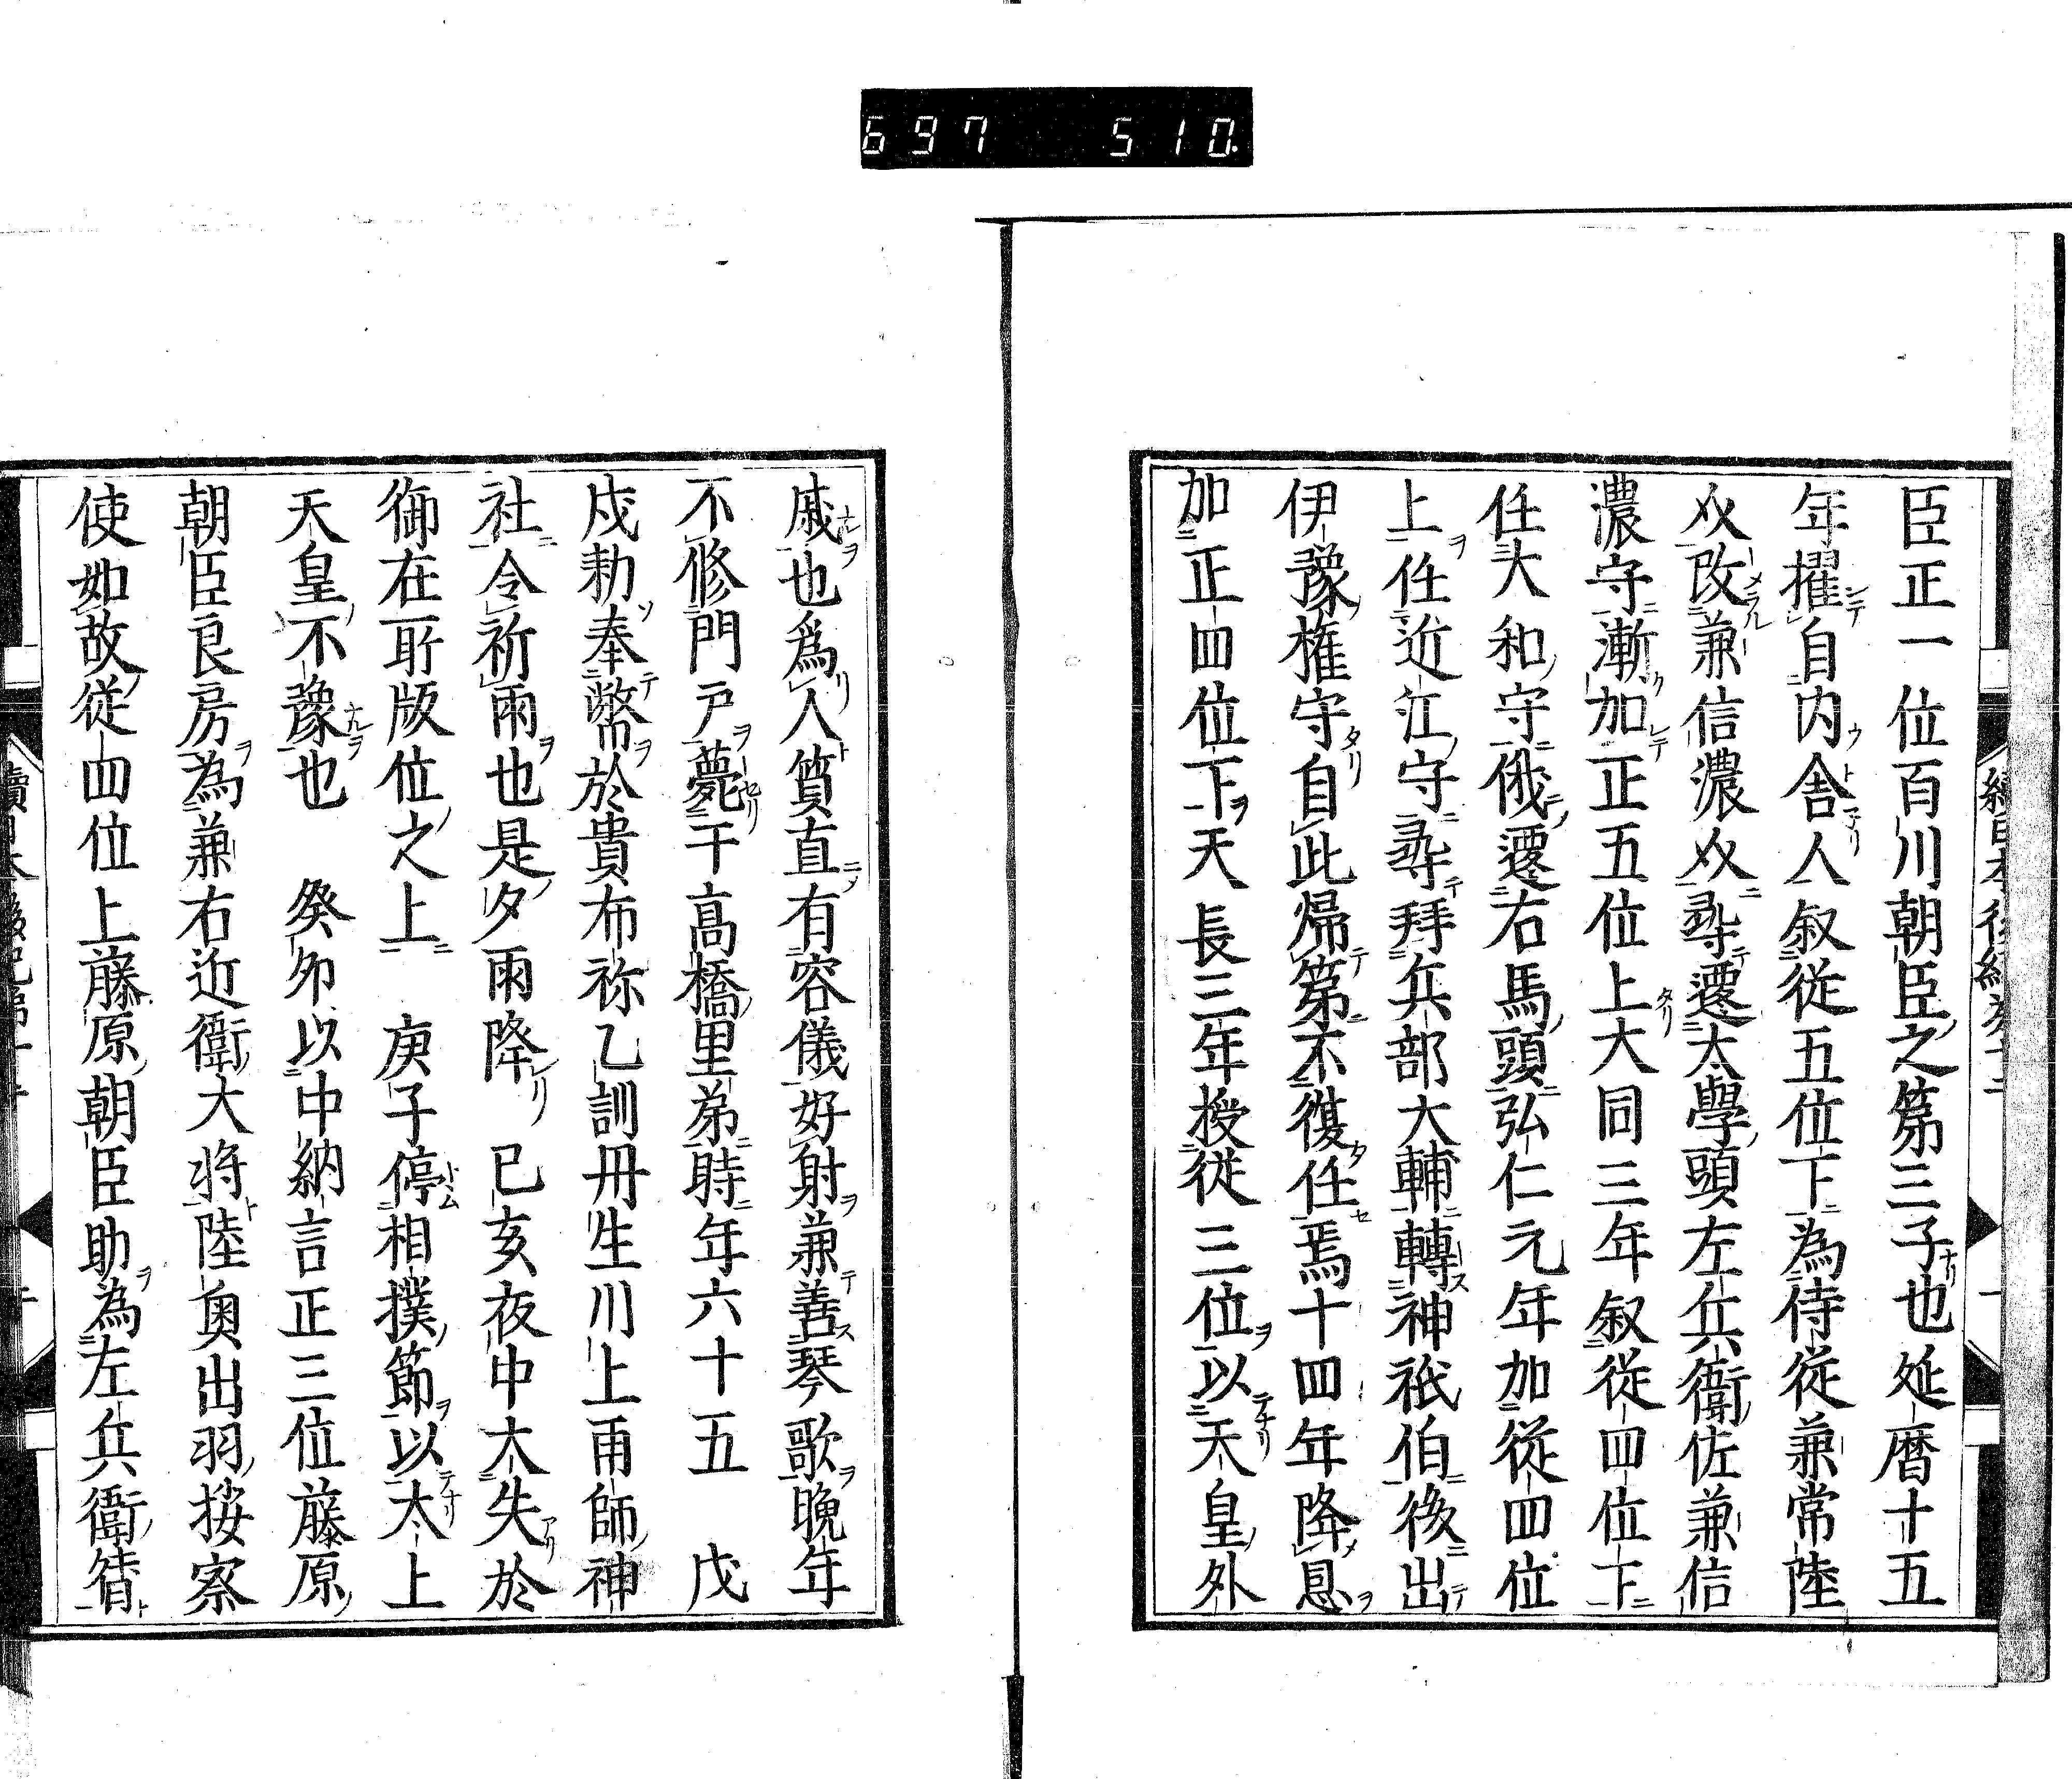 697 510.
臣正一位百川朝臣之第三子也延暦十五
年擢自内舎人叙従五位下為侍従兼常陸
㕛改兼信濃㕛尋遷太學頭左兵衛佐兼信
濃守漸加正五位上大同三年叙従四位下
任大和守俄遷右馬頭弘仁元年加従四位
上任近江守尋拜兵部大輔轉神祇伯後出
伊豫権守自此帰第不復任焉十四年降恩
加正四位下天長三年授従三位以天皇外
戚也爲人質直有容儀好射兼善琴歌晩年
不修門戸薨于高橋里第時年六十五　戊
戌勅奉幣於貴布祢乙訓丹生川上雨師神
社令祈雨也是夕雨降　已亥夜中大失於
御在所版位之上　庚子停相撲節以太上
天皇不豫也　癸夘以中納言正三位藤原
朝臣良房為兼右近衛大将陸奥出羽按察
使如故従四位上藤原朝臣助為左兵衛督